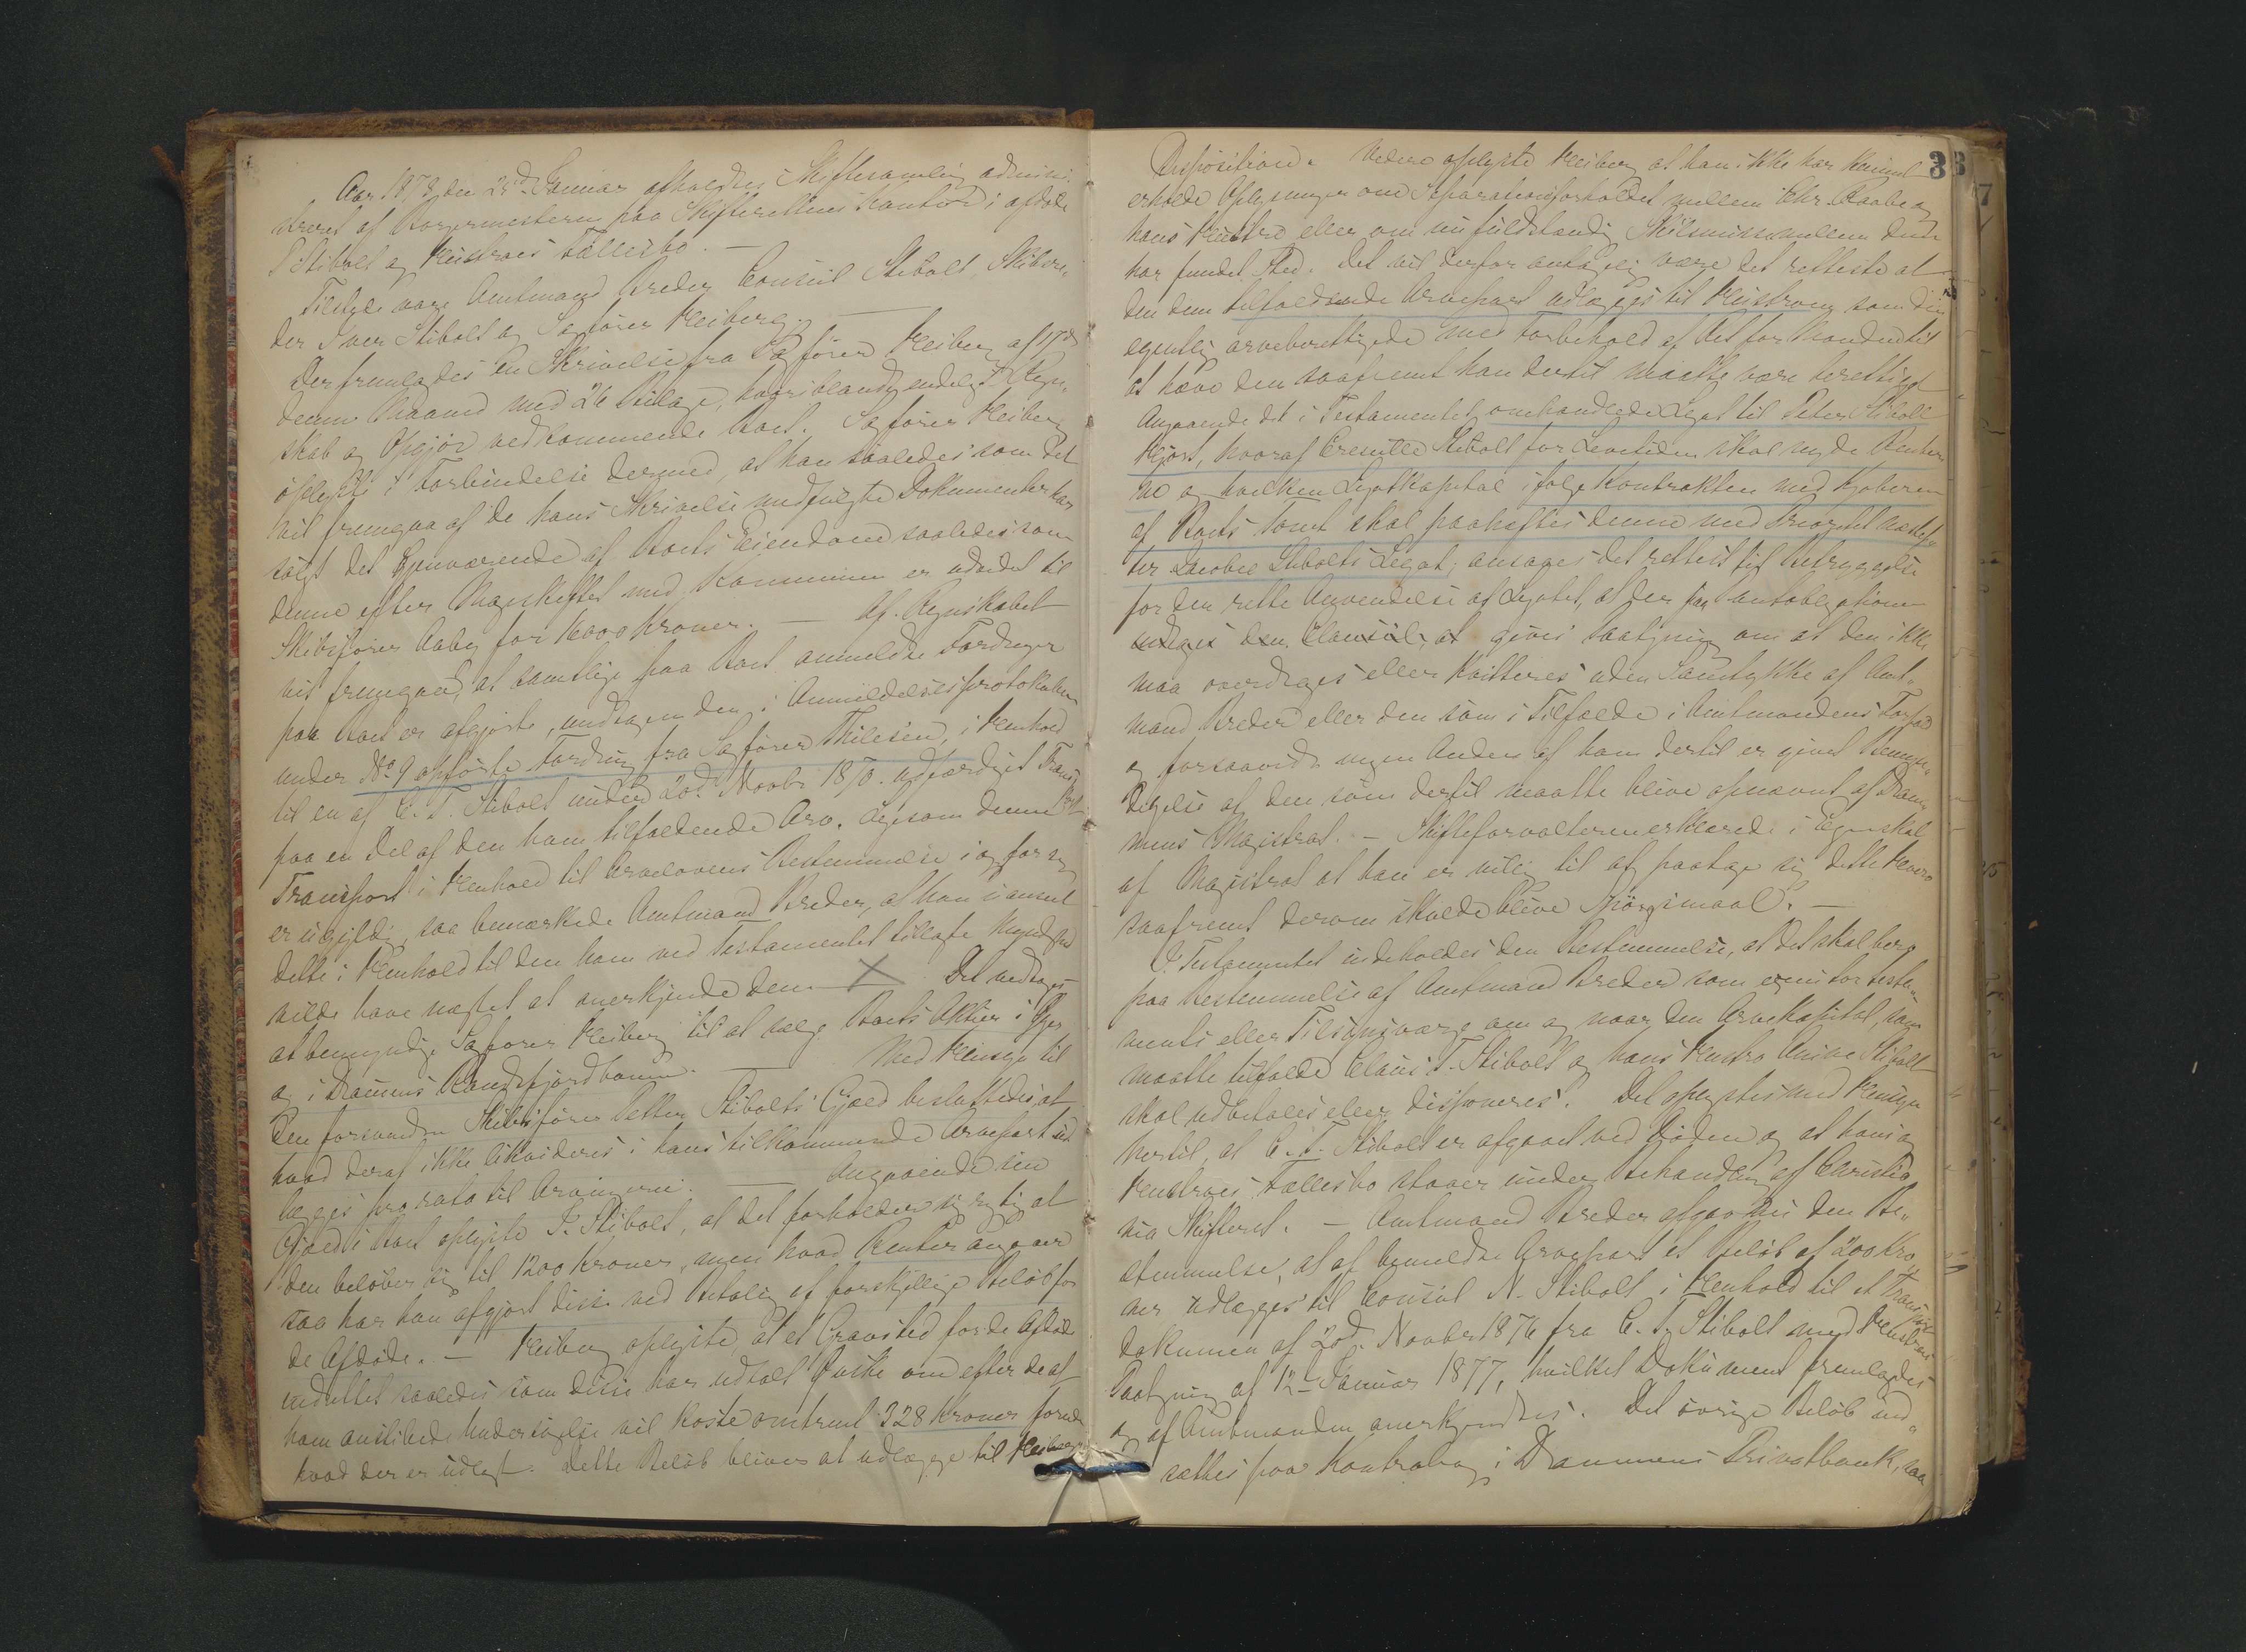 Aar 1878, den 25d Januar afholdtes Skiftesamling admini-
streret af Borgermesteren paa Skifterettens Kontor i afdøde
P. Stibolt og Hustrues Fællesbo. —
Tilstede vare Amtmand Breder, Consul Stibolt, Skibsre-
der Iver Stibolt og Sagfører Heiberg. —
Der fremlagdes en Skrivelse fra Sagfører Heiberg af 17d
denne Maaned med 26 Bilage, hvoriblandt endeligt Regn-
skab og Opgjør vedkommende Boet. Sagfører Heiberg
oplyste i Forbindelse dermed, at han saaledes som det
vil fremgaa af de hans Skrivelse medfulgte Dokumenter har
solgt det Gjenværende af Boets Eiendom saaledes som
denne efter Mageskiftet med Kommunen er udvidet til
Skibsfører Aaby for 16000 Kroner. — Af Regnskabet
vil fremgaa, at samtlige paa Boet anmeldte Fordringer
paa Boet er afgjorte, undtagen den i Anmeldelsesprotokollen
under No 9 opførte Fordring fra Sagfører Thilesen, i Henhold
til en af C. T. Stibolt under 20d Novbr 1870 udfærdiget Trans-
port paa en Del af den ham tilfaldende Arv. Ligesom denne
Transport i Henhold til Arvelovens Bestemmelse i og for sig
er ugyldig, saa bemærkede Amtmand Breder, at han uanseet
dette i Henhold til den ham ved Testamentet tillagte Myndighed
vilde have nægtet at anerkjende den. X Det vedtoges
at bemyndige Sagfører Heiberg til at sælge Boets Aktier i
og i Drammens Randsfjordbanen. — Med Hensyn til
den forsvundne Skibsfører Petter Stibolts Gjæld besluttedes, at
hvad deraf ikke likvideres i hans tilkommende Arvepart ud-
lægges pro rata til Arvingerne. — Angaaende sin
Gjæld i Boet oplyste I. Stibolt, at det forholder sig rigtig at
den beløber sig til 1200 Kroner, men hvad Renter angaaer
saa har han afgjort disse ved Betaling af forskjellige Beløb for
de Afdøde. — Heiberg oplyste, at et Gravsted for de Afdøde
indrettet saaledes som disse har udtalt Ønske om efter de af
ham anstillede Undersøgelse vil koste omtrent 328 Kroner foruden
hvad der er udlagt. Dette Beløb bliver at udlægge til Heibergs
3
Disposition. Videre oplyste Heiberg at han ikke har kunnet
erholde Oplysninger om Separationsforholdet mellem Chr. Raabe og
hans Hustru eller om nu fuldstændig Skilsmisse mellem dem
har fundet Sted. Det vil derfor antagelig være det retteste at
den dem tilfaldende Arvepart udlægges til Hustruen som den
egentlig arveberettigede med Forbehold af Ret for Manden til
at hæve den saafremt han dertil maatte være berettiget
Angaaende det i Testamentet omhandlede Legat til Peter Stibolt
Hjort, hvoraf Bernille Stibolt for Levetiden skal nyde Renter-
ne og hvilken Legatkapital ifølge Kontrakten med Kjøberen
af Boets Tomt skal paaheftes denne med Prioritet næstef-
ter Jacobee Stibolts Legat, ansages det rettest til Betryggelse
for den rette Anvendelse af Legatet, at der paa Pantobligationen
indtages den Clausul, at gives Paategning om at den ikke
maa overdrages eller kvitteres uden Samtykke af Amt-
mand Breder eller den som i Tilfælde i Amtmandens Forfald
og forsaavidt ingen Anden af ham dertil er givet Bemyn-
digelse af den som dertil maatte blive opnævnt af Dram-
mens Magistrat. — Skifteforvalteren erklærede i Egenskab
af Magistrat at han er villig til at paatage sig dette Hverv
saafremt derom skulde blive Spørgsmaal. —
I Testamentet indeholdes den Bestemmelse, at det skal bero
paa Bestemmelse af Amtmand Breder som executor testa-
menti eller Tilsynsværge om og naar den Arvekapital, som
maatte tilfalde Claus T. Stibolt og hans Hustru Anine Stibolt
skal udbetales eller disponeres. Det oplystes med Hensyn
hertil, at C. T. Stibolt er afgaaet ved Døden og at hans og
Hustrues Fællesbo staaer under Behandling af Christia-
nia Skifteret. — Amtmand Breder afgav nu den Be-
stemmelse, at af bemeldte Arvepart et Beløb af 200 Kro-
ner udlægges til Consul N. Stibolt i Henhold til et Transport-
dokumen af 20d Novbr 1876 fra C. T. Stibolt med Hustrues
Paategning af 12 Januar 1877, hvilket Dokument fremlagdes
og af Amtmanden anerkjendtes. Det øvrige Beløb ind-
sættes paa Kontrabog i Drammens Privatbank, saa